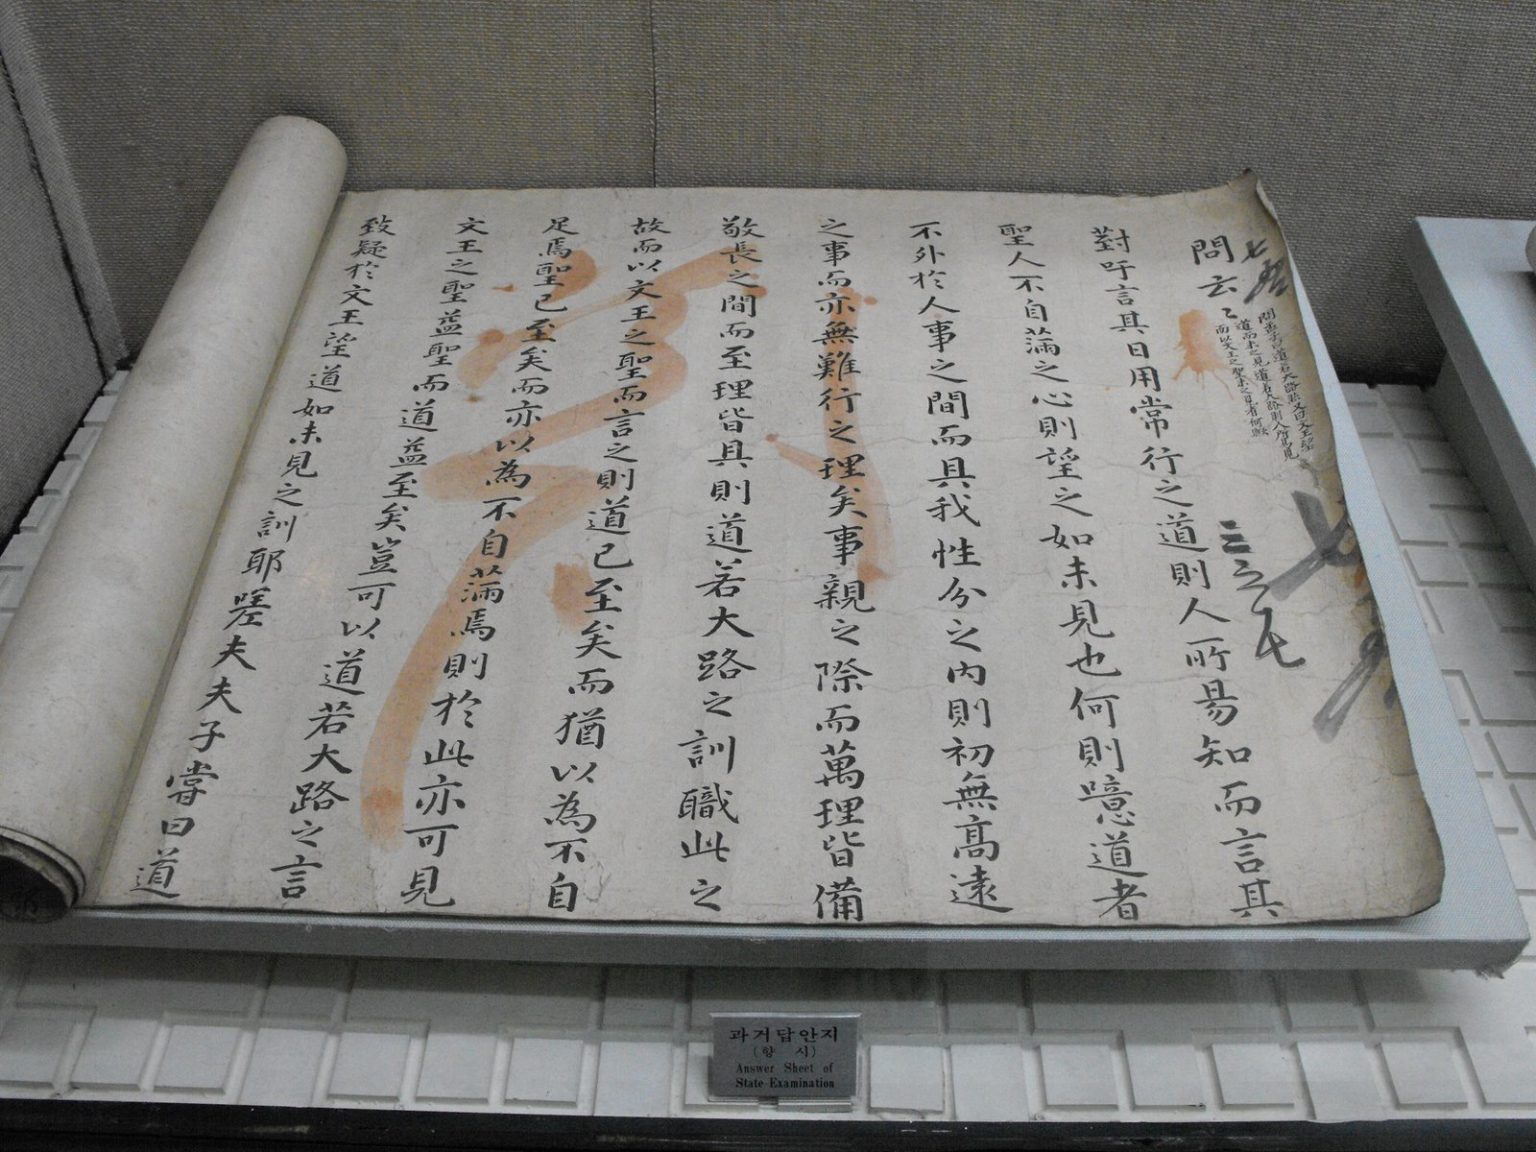 問云〻
問孟子曰道若大路然又曰文王望
道而未之見道若大路則人所易見
而以文王之聖未之見者何歟
三之七
對吁言其日用常行之道則人所易知而言其
聖人不自滿之心則望之如未見也何則噫道者
不外於人事之間而具我性分之內則初無高遠
之事而亦無難行之理矣事親之際而萬理皆備
敬長之間而至理皆具則道若大路之訓職此之
故而以文王之聖而言之則道已至矣而猶以為不自
足焉聖已至矣而亦以為不自滿焉則於此亦可見
文王之聖益聖而道益至矣豈可以道若大路之言
致疑於文王望道如未見之訓耶嗟夫夫子嘗曰道
과거답안지
(향 시)
Answer Sheet of
State Examination